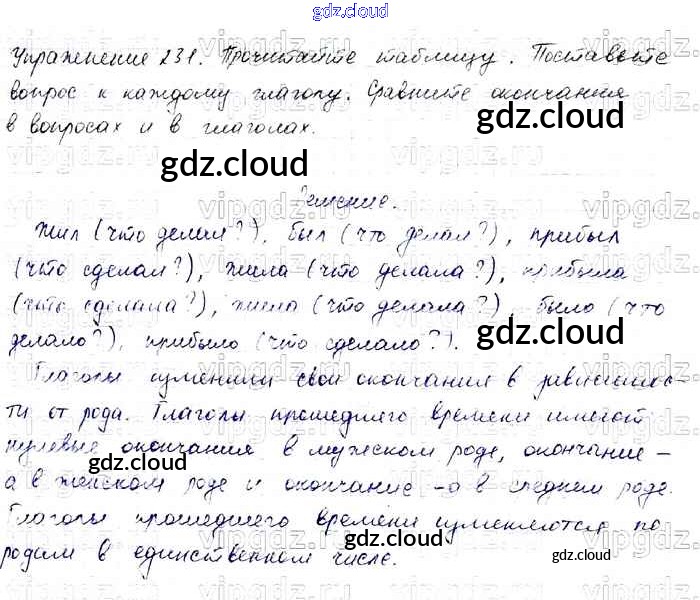 gdz.cloud
Упражнение 231. Прочитайте таблицу. Поставьте
вопрос к каждому глаголу. Сравните окончания
в вопросах и в глаголах.
gdz.cloud
gdz.cloud
Решение.
Жил (что делал?), был (что делал?), прибыл
(что сделал?), жила (что делала?), прибыла
(что сделала?), жило (что делало?), было (что
делало?), прибыло (что сделало?).
gdz.cloud
Глаголы изменили свои окончания в зависимос-
ти от рода. Глаголы прошедшего времени имеют
нулевые окончания в мужском роде, окончание -
а в женском роде и окончание -о в среднем роде.
gdz.cloud
Глаголы прошедшего времени изменяются по
родам в единственном числе.
gdz.cloud
gdz.cloud